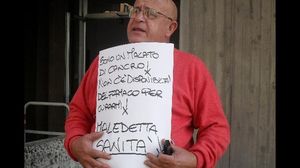 SONO UN MALATO
DI CANCRO!
NON C'È DISPONIBILITÀ
DEL FARMACO PER
CURARMI!
MALEDETTA
SANITÀ!